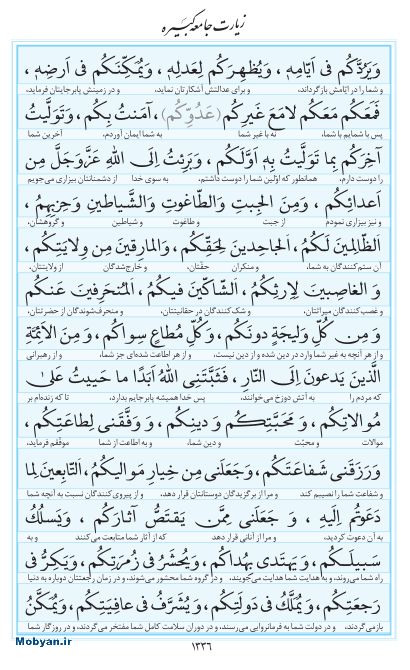 زیارت جامعه کبیره
وَيَرُدَّكُم فى اَيّامِهِ ، وَيُظهِرَكُم لِعَدلِهِ ، وَيُمَكِّنَكُم فى اَرضِهِ ،
و شما را در ایّامش بازگرداند، و برای عدالتش آشکارتان نماید، و در زمینش پابرجایتان فرماید،
فَمَعَكُم مَعَكُم لامَعَ غَيرِكُم (عَدُوِّكُم) ، آمَنتُ بِكُم ، وَتَوَلَّيتُ
پس با شمایم با شما، نه با غیر شما به شما ایمان آوردم، آخرین شما
آخِرَكُم بِما تَوَلَّيتُ بِهِ اَوَّلَكُم ، وَبَرِئتُ اِلَى اللهِ عَزَّوَجَلَّ مِن
را دوست دارم، همانطور که اوّلین شما را دوست داشتم، به سوی خدا از دشمنانتان بیزاری می‌جویم
اَعدائِكُم ، وَمِنَ الجِبتِ وَالطّاغوتِ وَالشَّياطينِ وَحِزبِهِمُ ،
و نیز بیزاری نمودم از جبت و طاغوت و شیاطین و گروهشان،
الظّالِمينَ لَكُم ، اَلجاحِدينَ لِحَقِّكُم ، وَالمارِقينَ مِن وِلايَتِكُم ،
آن ستم‌کنندگان به شما، و منکران حقّتان، و خارج‌شدگان از ولایتتان،
وَ الغاصِبينَ لِاِرثِكُم ، اَلشّاكّينَ فيكُم ، اَلمُنحَرِفينَ عَنكُم
و غصب‌کنندگان میراثتان، و شک کنندگان در حقانیتتان، و منحرف‌شوندگان از حضرتتان،
وَ مِن كُلِّ وَليجَةٍ دونَكُم ، وَكُلِّ مُطاعٍ سِواكُم ، وَ مِنَ الاَئِمَّةِ
و از هر آنچه به غیر شما وارد در دین شده و از دین نیست، و از هر اطاعت شده‌ای جز شما، و از رهبرانی
الَّذينَ يَدعونَ اِلَى النّارِ ، فَثَبَّتَنِى اللهُ اَبَدًا ما حَييتُ عَلىٰ
که مردم را به آتش دوزخ می‌خوانند، پس خدا همیشه پابرجایم بدارد، تا که زنده‌ام بر
مُوالاتِكُم ، وَ مَحَبَّتِكُم وَ دينِكُم ، وَ وَفَّقَنى لِطاعَتِكُم ،
موالات و محبّت و دین شما، و به اطاعت از شما موفّقم فرماید،
وَرَزَقَنى شَفاعَتَكُم ، وَجَعَلَنى مِن خِيارِ مَواليكُمُ ، التّابِعينَ لِما
و شفاعت شما را نصیبم کند و مرا از برگزیدگان دوستانتان قرار دهد، و از پیروی کنندگان نسبت به آنچه شما
دَعَوتُم اِلَيهِ ، وَ جَعَلَنى مِمَّن يَقتَصُّ آثارَكُم ، وَيَسلُكُ
به آن دعوت کردید، و مرا از آنانی قرار دهد که از آثار شما متابعت می‌کنند و به
سَبيلَكُم ، وَيَهتَدى بِهُداكُم ، وَيُحشَرُ فى زُمرَتِكُم ، وَيَكِرُّ فى
راه شما می‌روند، و به هدایت شما هدایت می‌جویند، و در گروه شما محشور می‌شوند، و در زمان رجعتتان دوباره به دنیا
رَجعَتِكُم ، وَيُمَلَّكُ فى دَولَتِكُم ، وَيُشَرَّفُ فى عافِيَتِكُم ، وَيُمَكَّنُ
بازمی‌گردند، و در دولت شما به فرمانروایی می‌رسند، و در دوران سلامت کامل شما مفتخر می‌گردند، و در روزگار شما
Mobyan.ir
۱۳۳۶